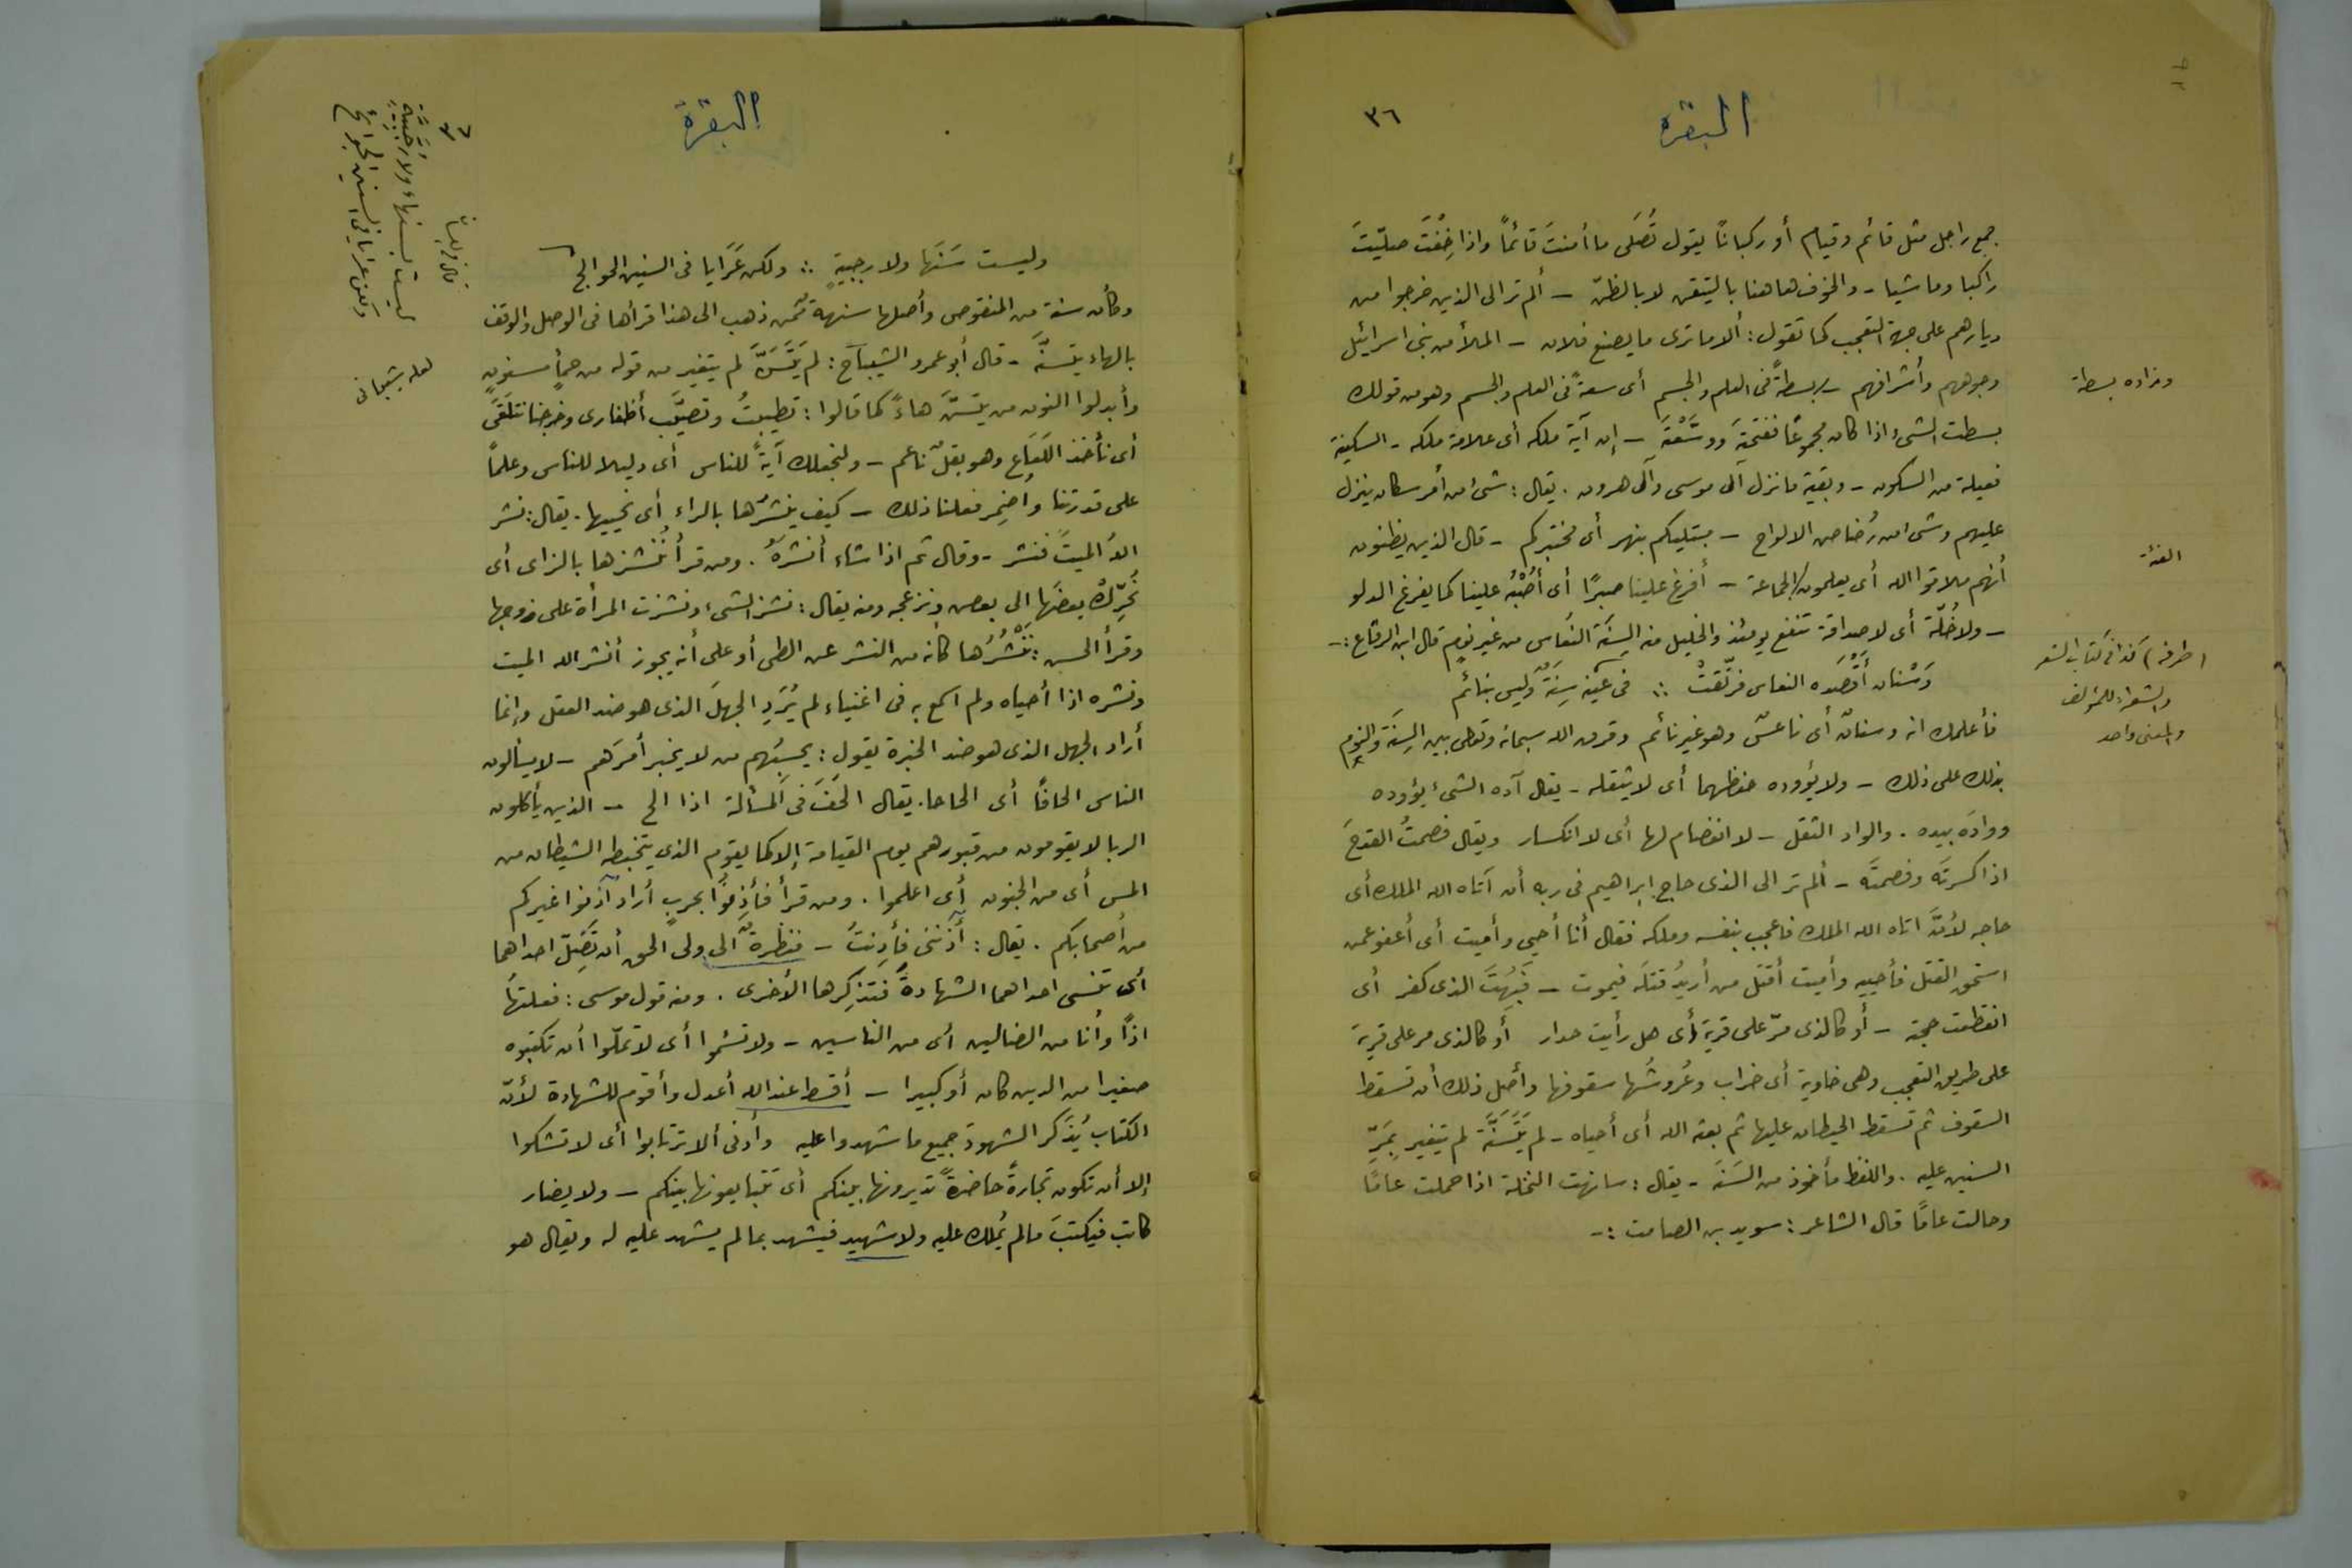 البقرة
٣٦
جمع راجل مثل قائم وقيام أو ركبانا يقول تُصَلى ما أمنتَ قائماً واذا خِفْتَ صليّتَ
راكبا وماشيا - والخوف هاهنا باليتقن لا بالظنّ - ألم تر الى الذين خرجوا من
ديارهم على جهة التعجب كما تقول: ألا ما ترى ما يصنع فلان - الملأ من بنى اسرائيل
وجوههم وأشرافهم - بسطةً فى العلم والجسم أى سعةً فى العلم والجسم وهو من قولك
وزاده بسطة
بسطت الشىء اذا كان مجموعًا ففتحتَه ووسَّعْتَه - إن آية ملكه أى علامة ملكه - السكينة
فعيلة من السكون - وبقية مانزل آلى موسى وآلى هرون . يقال: شىء من أمر سكان ينزل
عليهم وشىء من رُضاض الالواح - مبتليكم بنهر أى مختبركم - قال الذين يظنون
أنهم ملاقوا الله أى يعلمون/الجماعة - أفرغ علينا صبرًا أى أُصْبُبْه علينا كما يفرغ الدلو
الفئة
- ولا خُلّة أى لا صداقة تنفع يومئذ والخليل منه السِنَة النُعَاس من غير نومٍ قال ابن الرقاع :-
(طرفه) كذا فى كتاب الشعر
والشعراء للمؤلف
والمعنى واحد
وَسْنان أَقْصَدَه النعاس فرنّقتْ ∴ فى عينه سِنَةٌ وليس بنائمِ
فأعلمك انه وسنانٌ أى ناعسٌ وهو غير نائم وفرق الله سبحانه وتعالى بين السِنَة والنوم
بذلك على ذلك - ولا يؤوده حفظهما أى لا يثقله - يقال آده الشىء يؤوده
ووادَه بيده . والواد الثقل - لا انفصام لها أى لا انكسار ويقال فصمتُ القدحَ
اذا كسرتَه وفصمتَه - ألم تر الى الذى حاج ابراهيم فى ربه أن آتاه الله الملك أى
حاجه لأنَّه اتاه الله الملك فاعجب بنفسه وملكه فقال أنا أحيى وأميت أى أعفو عمن
استحق القتل فأحييه وأميت أقتل من أريدُ قتلَه فيموت - فَبُهِتَ الذى كفر أى
انقطعت حجته - أو كالذى مرّ على قرية أى هل رأيت حدار أو كالذى مر على قرية
على طريق التعجب وهى خاوية أى خراب وعُروشُها سقوفها وأصل ذلك أن تسقط
السقوف ثم تسقط الحيطان عليها ثم بعثه الله أى أحياه - لم يَتَسَنَّه لم يتغير بمَرِّ
السنين عليه . واللفظ مأخوذ من السَنَه - يقال: سانهت النخلة اذا حملت عامًا
وحالت عامًا قال الشاعر: سويد بن الصامت :-
البقرة
٣٧
ليست بسنهاء ولا رُجَّبِيَّة
ولكن عرايا فى السنين الجوائح
وليست سَنَهَا ولا رجبيةٍ ∴ ولكن عَرَايا فى السنين الحوالج
وكأن سنة من المنقوص وأصلها سنهة فمن ذهب الى هذا قرأها فى الوصل والوقف
بالهاء يتسنَّه - قال أبو عمرو الشيباج: لم يَتَسَنَّ لم يتغير من قوله من حمأٍ مسنونٍ
لعله شيبانى
وأبدلوا النون من يتسنَّ هاءً كما قالوا: تطيبتُ وتصيَّب أظفارى وخرجنا نتلَعَّى
أى نأخذ اللَعَاع وهو بقلٌ ناعم - ولنجعلك آيةً للناس أى دليلا للناس وعلماً
على قدرتنا واضمر فعلنا ذلك - كيف ينشرها بالراء أى نحييها . يقال: نشر
الله الميتَ فنشر - وقال ثم اذا شاء أنشرَهُ . ومن قرأ نُنشزها بالزاى أى
نُحَرِّكُ بعضَها الى بعض ونزعجه ومنه يقال: نشز الشىء ونشزت المرأة على زوجها
وقرأ الحسن: نَنْشُرُها كانه من النشر عن الطى أو على أنه يجوز أنشر الله الميت
ونشره اذا أحياه ولم اسمع به فى اغنياء لم يُرِدِ الجهلَ الذى هو ضد العقل وإنما
أراد الجهل الذى هو ضد الخبرة يقول: يحسبُهم من لا يخبر أمرَهم - لا يسألون
الناس الحافًا أى الحاحا . يقال الحَفَ فى المسألة اذا الح - الذين يأكلون
الربا لا يقومون من قبورهم يوم القيامة إلا كما يقوم الذى يتخبطه الشيطان من
المس أى من الجنون أى اعلموا . ومن قرأ فأذِنُوا بحربٍ أراد آذنوا غيركم
من أصحابكم . يقال: آذَننى فأذِنتُ - فنظرةٌ الى ولى الحق أن تَضِلّ احداهما
أى تنسى احداهما الشهادةً فتذكِرها الأخرى . ومنه قول موسى: فعلتها
اذاً وأنا من الضالين أى من الناسين - ولا تسئموا أى لا تملّوا أن تكتبوه
صغيرا من الدين كان أو كبيرا - أقسط عند الله أعدل وأقوم للشهادة لأنّ
الكتاب يُذَكر الشهودَ جميع ما شهدوا عليه وأدنى ألا ترتابوا أى لا تشكوا
إلا أن تكون تجارةً حاضرةً تديرونها بينكم أى تتبايعونها بينكم - ولا يضار
كاتب فيكتبَ مالم يُملك عليه ولا شهيد فيشهد بما لم يشهد عليه له ويقال هو